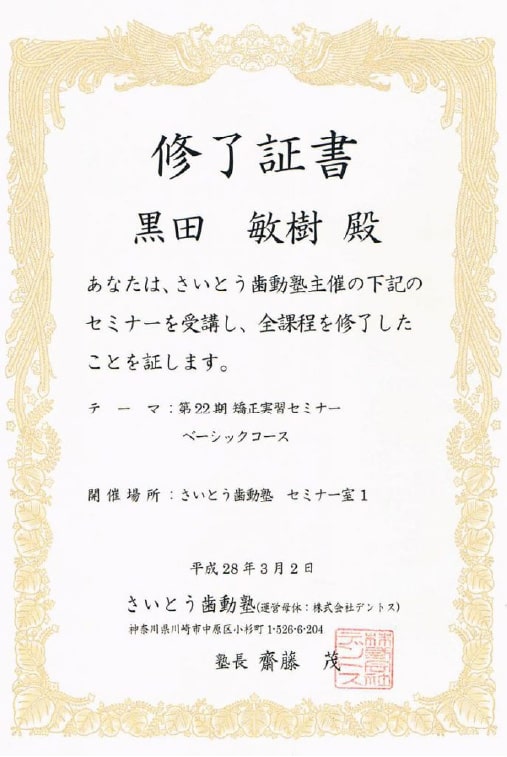 修了証書
黒田 敏樹 殿
あなたは、さいとう歯動塾主催の下記の
セミナーを受講し、全課程を修了した
ことを証します。
テーマ:第22期 矯正実習セミナー
ベーシックコース
開催場所:さいとう歯動塾 セミナー室1
平成28年3月2日
さいとう歯動塾(運営母体:株式会社デントス)
神奈川県川崎市中原区小杉町1-526-6-204
塾長 齋藤 茂
株式会社
デントス